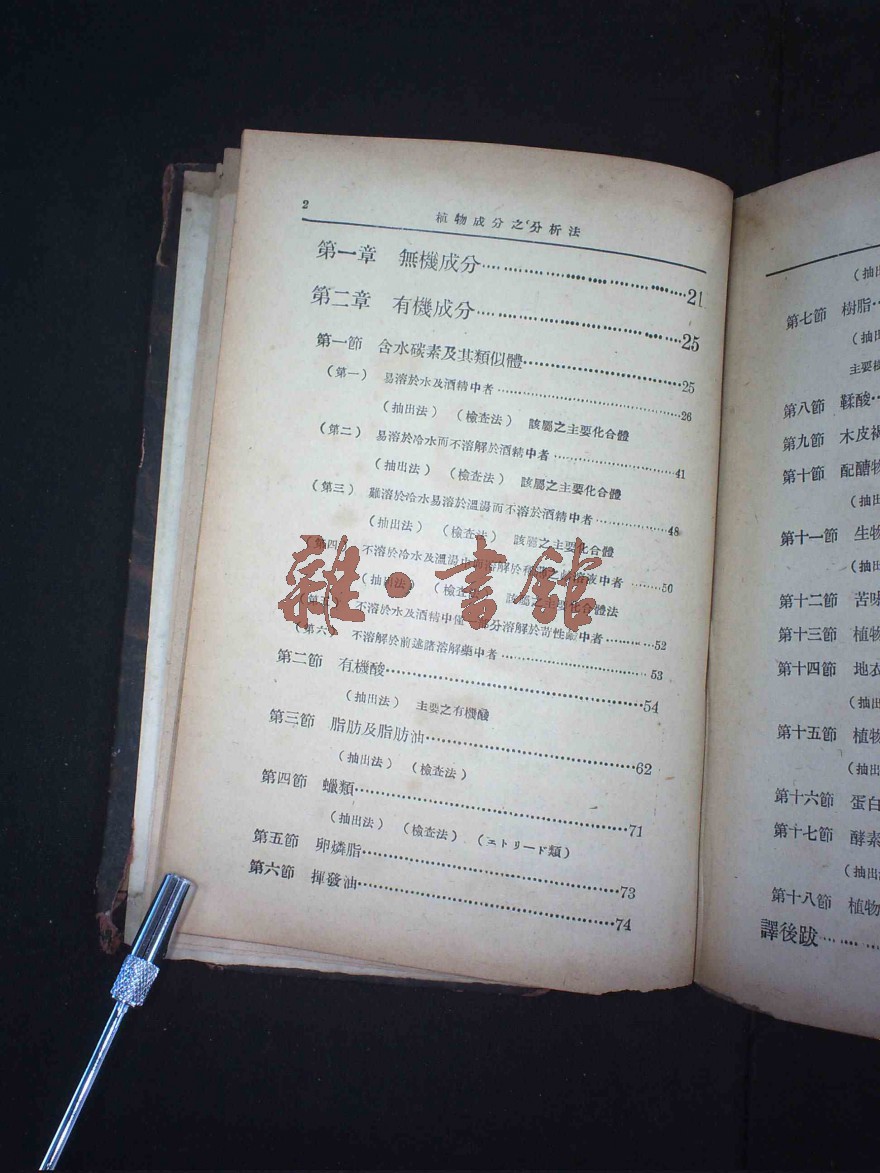 2
植物成分之分析法
第一章 無機成分……21
第二章 有機成分……25
第一節 含水碳素及其類似體……25
(第一) 易溶於水及酒精中者……26
(抽出法) (檢查法) 該屬之主要化合體
(第二) 易溶於冷水而不溶解於酒精中者……41
(抽出法) (檢查法) 該屬之主要化合體
(第三) 難溶於冷水易溶於溫湯而不溶於酒精中者……48
(抽出法) (檢查法) 該屬之主要化合體
(第四) 不溶於冷水及溫湯 溶解於 溶液中者……50
(抽出法) (檢查法) 該屬之主要化合體法
(第五) 不溶於水及酒精中僅一部分溶解於苛性鹼中者……52
(第六) 不溶解於前述諸溶解藥中者……53
第二節 有機酸……54
(抽出法) 主要之有機酸
第三節 脂肪及脂肪油……62
(抽出法) (檢查法)
第四節 蠟類……71
(抽出法) (檢查法) (ェトリード類)
第五節 卵燐脂……73
第六節 揮發油……74
雜·書館
(抽出
第七節 樹脂
(抽出
主要樹
第八節 鞣酸
第九節 木皮褐
第十節 配醣物
(抽出
第十一節 生物
(抽出
第十二節 苦味
第十三節 植物
第十四節 地衣
(抽出
第十五節 植物
(抽出
第十六節 蛋白
第十七節 酵素
(抽出
第十八節 植物
譯後跋……